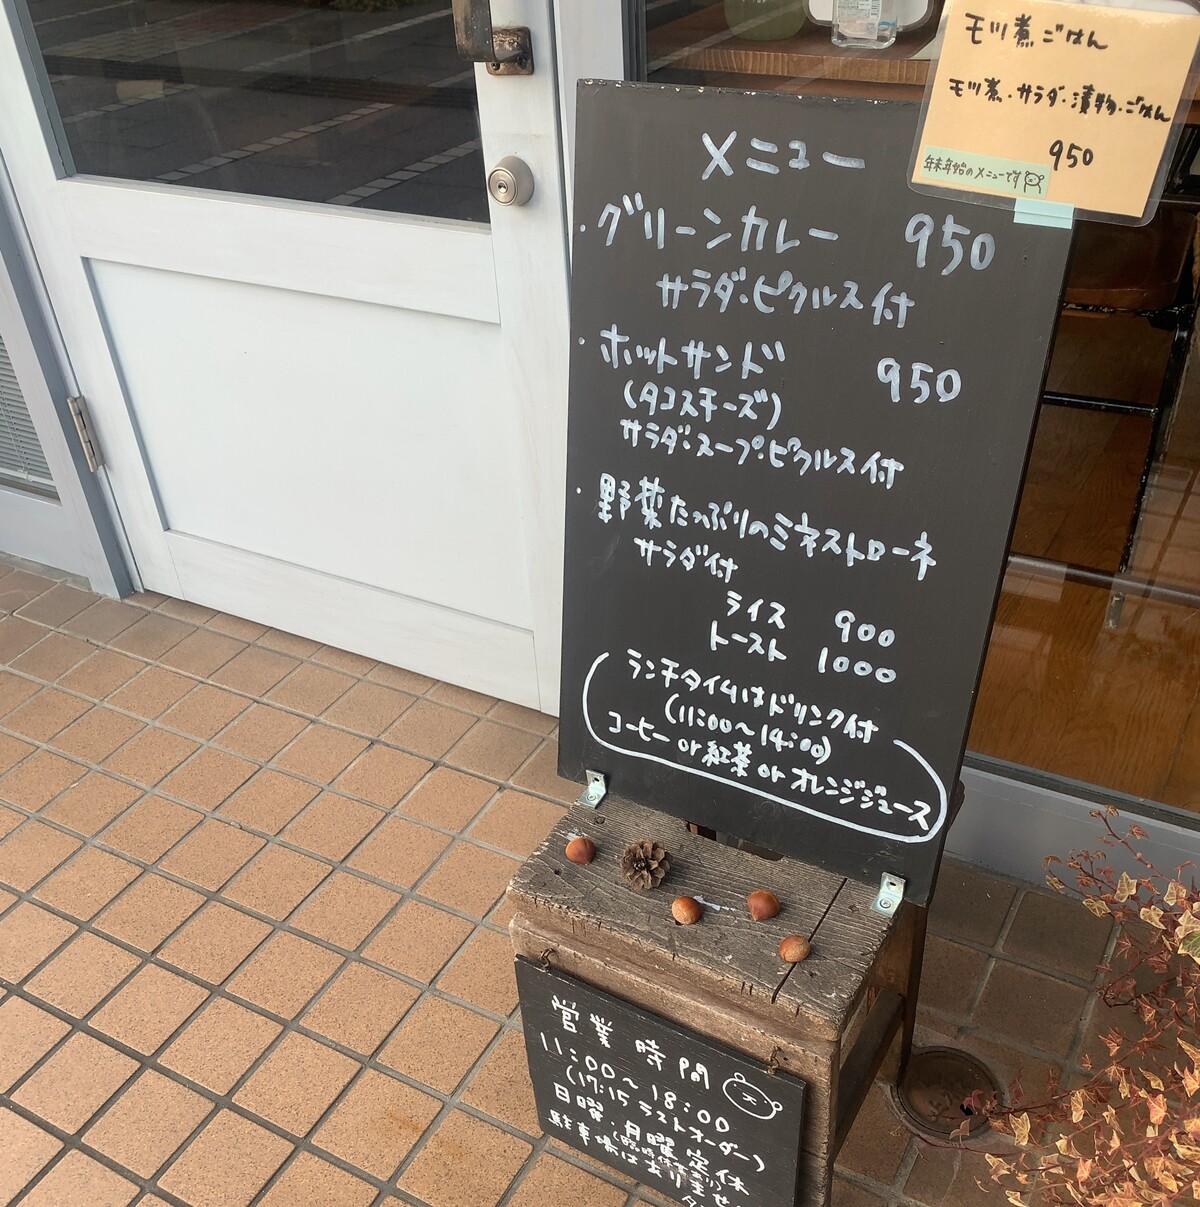 モツ煮ごはん
モツ煮・サラダ・漬物・ごはん
950
年末年始のメニューです
メニュー
・グリーンカレー 950
サラダ・ピクルス付
・ホットサンド 950
(タコスチーズ)
サラダ・スープ・ピクルス付
・野菜たっぷりのミネストローネ
サラダ付
ライス 900
トースト 1000
ランチタイムはドリンク付
(11:00〜14:00)
コーヒー or 紅茶 or オレンジジュース
営業時間
11:00〜18:00
(17:15 ラストオーダー)
日曜・月曜定休
(臨時休業あり)
駐車場はありませ